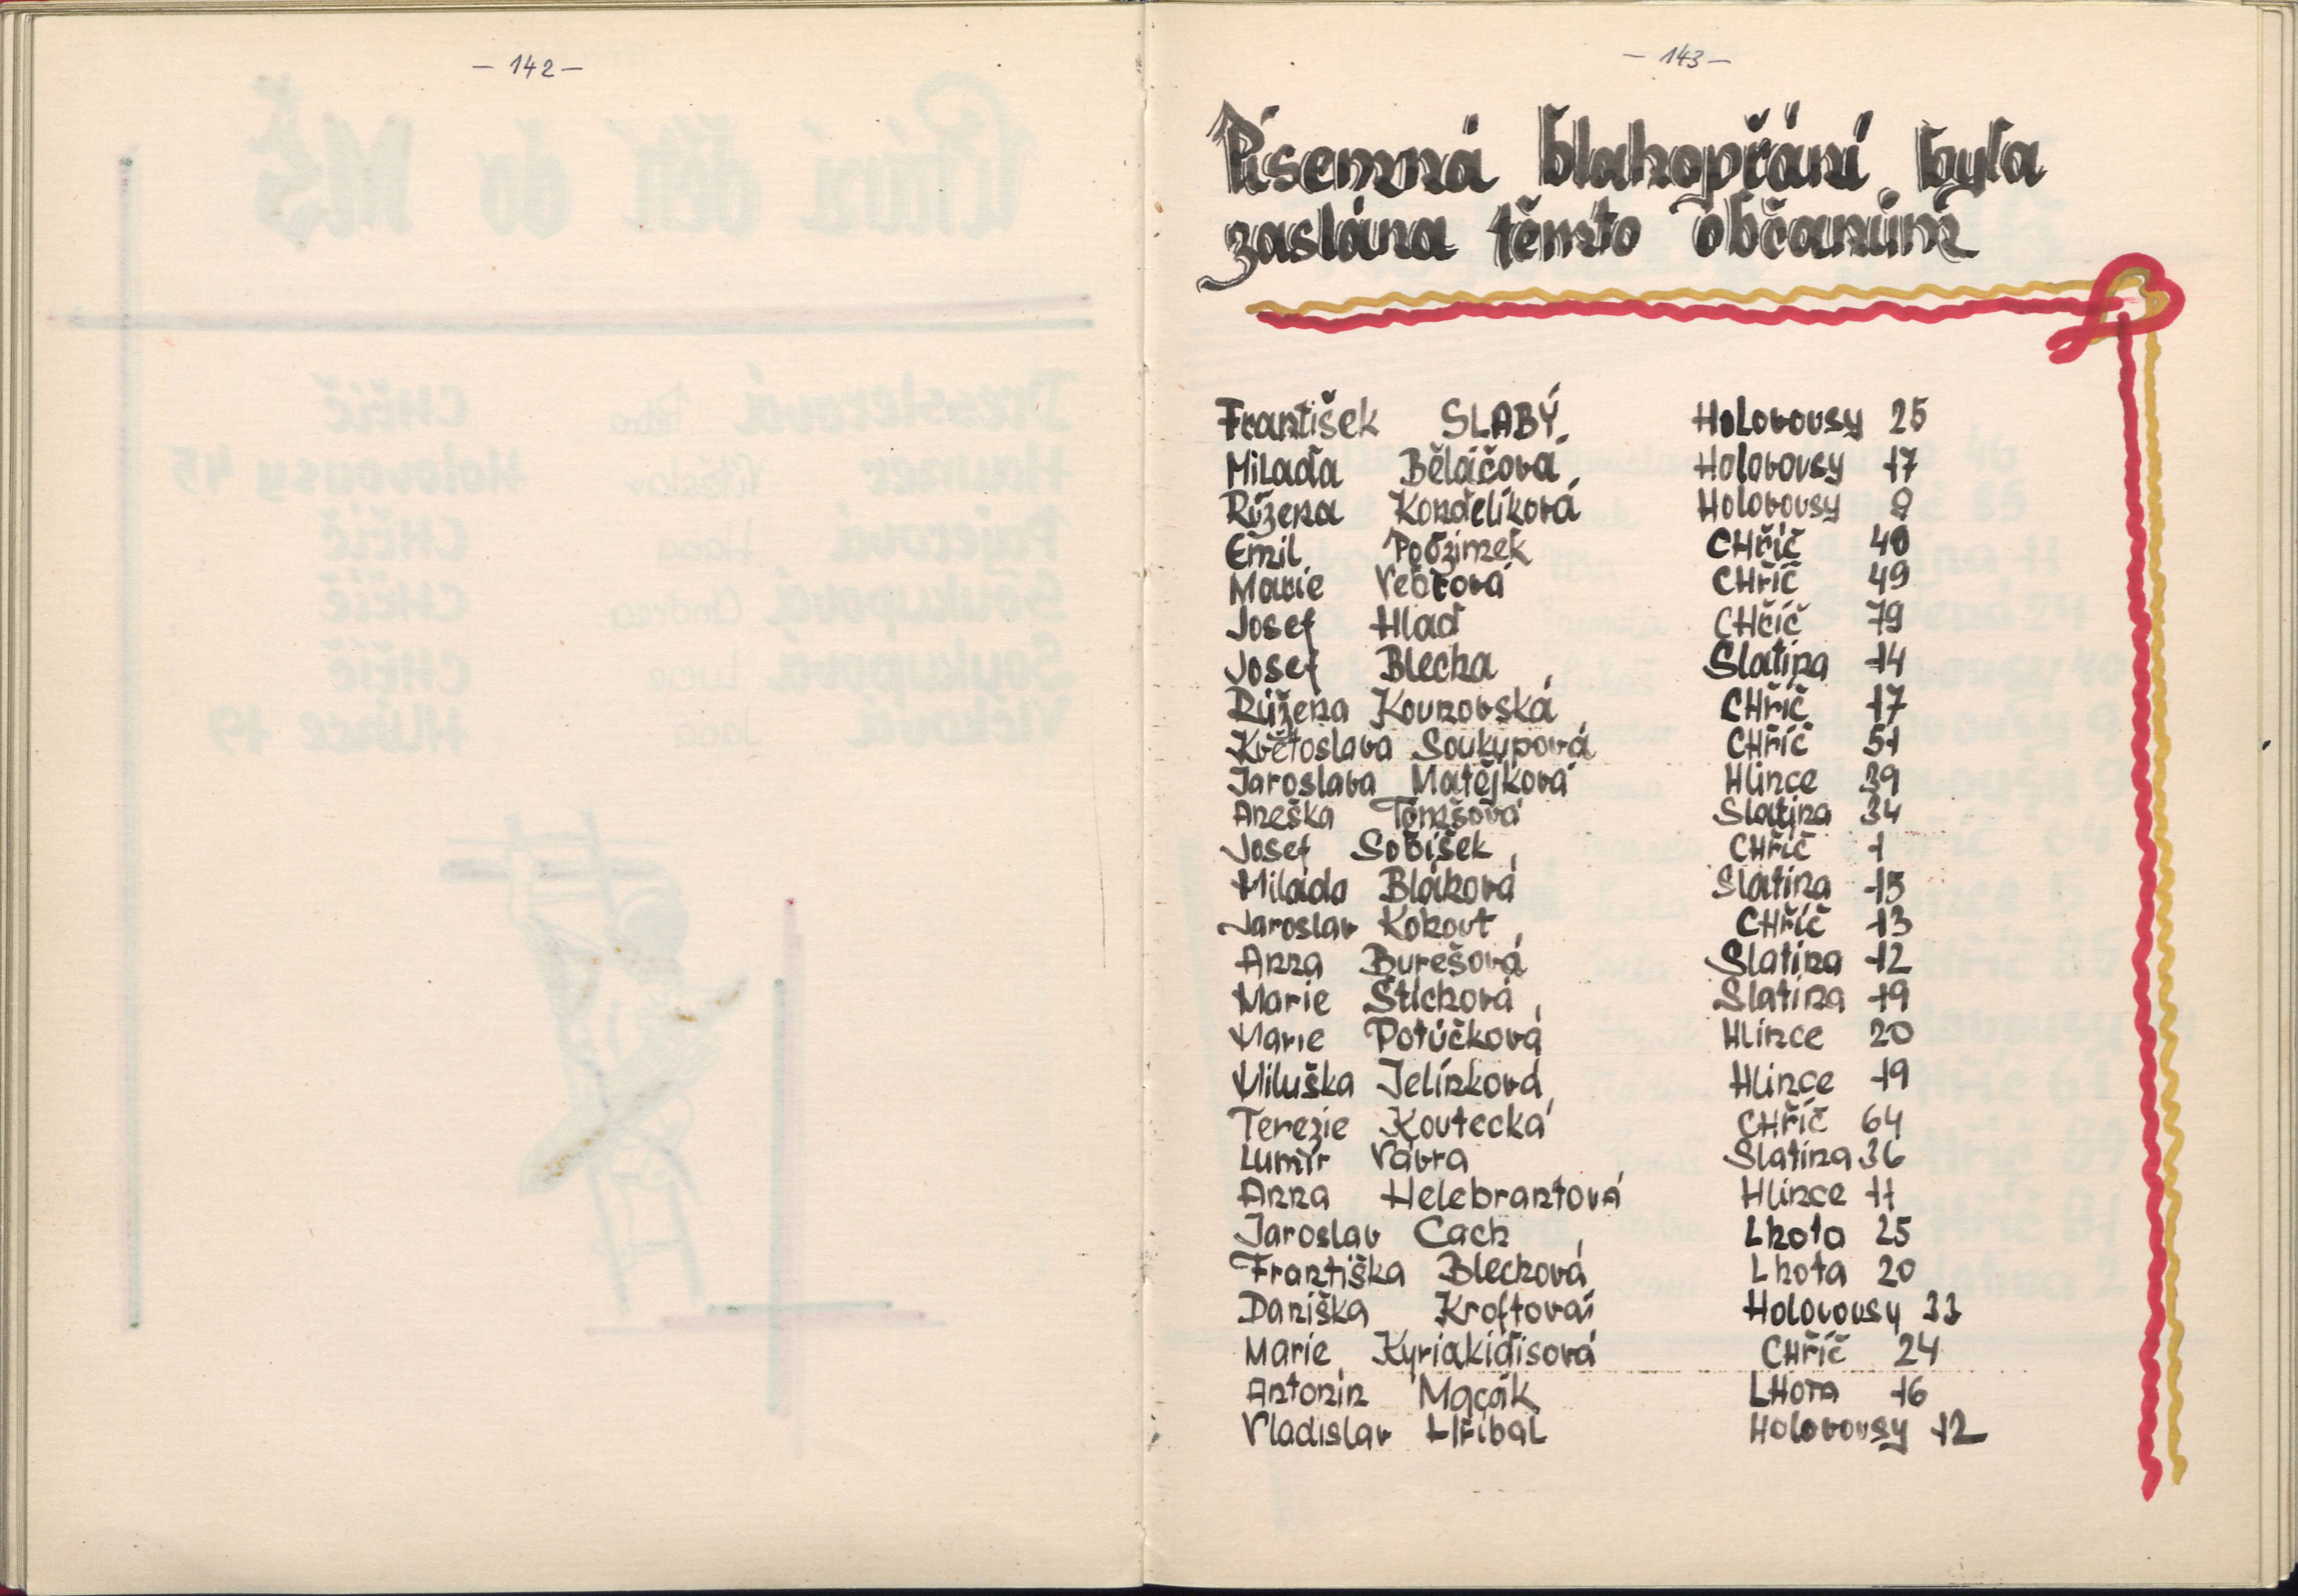 – 142 –
– 143 –
Písemná blahopřání byla
zaslána těmto občanům
František SLABÝ Holovousy 25
Milada Běláčová Holovousy 17
Růžena Kondelíková Holovousy 8
Emil Podzimek CHříč 40
Marie Večeřová CHříč 49
Josef Hlad CHříč 79
Josef Blecha Slatina 14
Růžena Kounovská CHříč 17
Květoslava Soukupová CHříč 51
Jaroslava Matějková Hlince 39
Anežka Tomšová Slatina 34
Josef Sobíšek CHříč 1
Milada Bláhová Slatina 15
Jaroslav Kohout CHříč 13
Anna Burešová Slatina 12
Marie Štichová Slatina 19
Marie Potůčková Hlince 20
Miluška Jelínková Hlince 19
Terezie Koutecká CHříč 64
Lumír Vávra Slatina 36
Anna Helebrantová Hlince 11
Jaroslav Cach Lhota 25
Františka Blechová Lhota 20
Daniška Kroftová Holovousy 33
Marie Kyriakidisová CHříč 24
Antonín Macák LHota 16
Vladislav Hříbal Holovousy 12